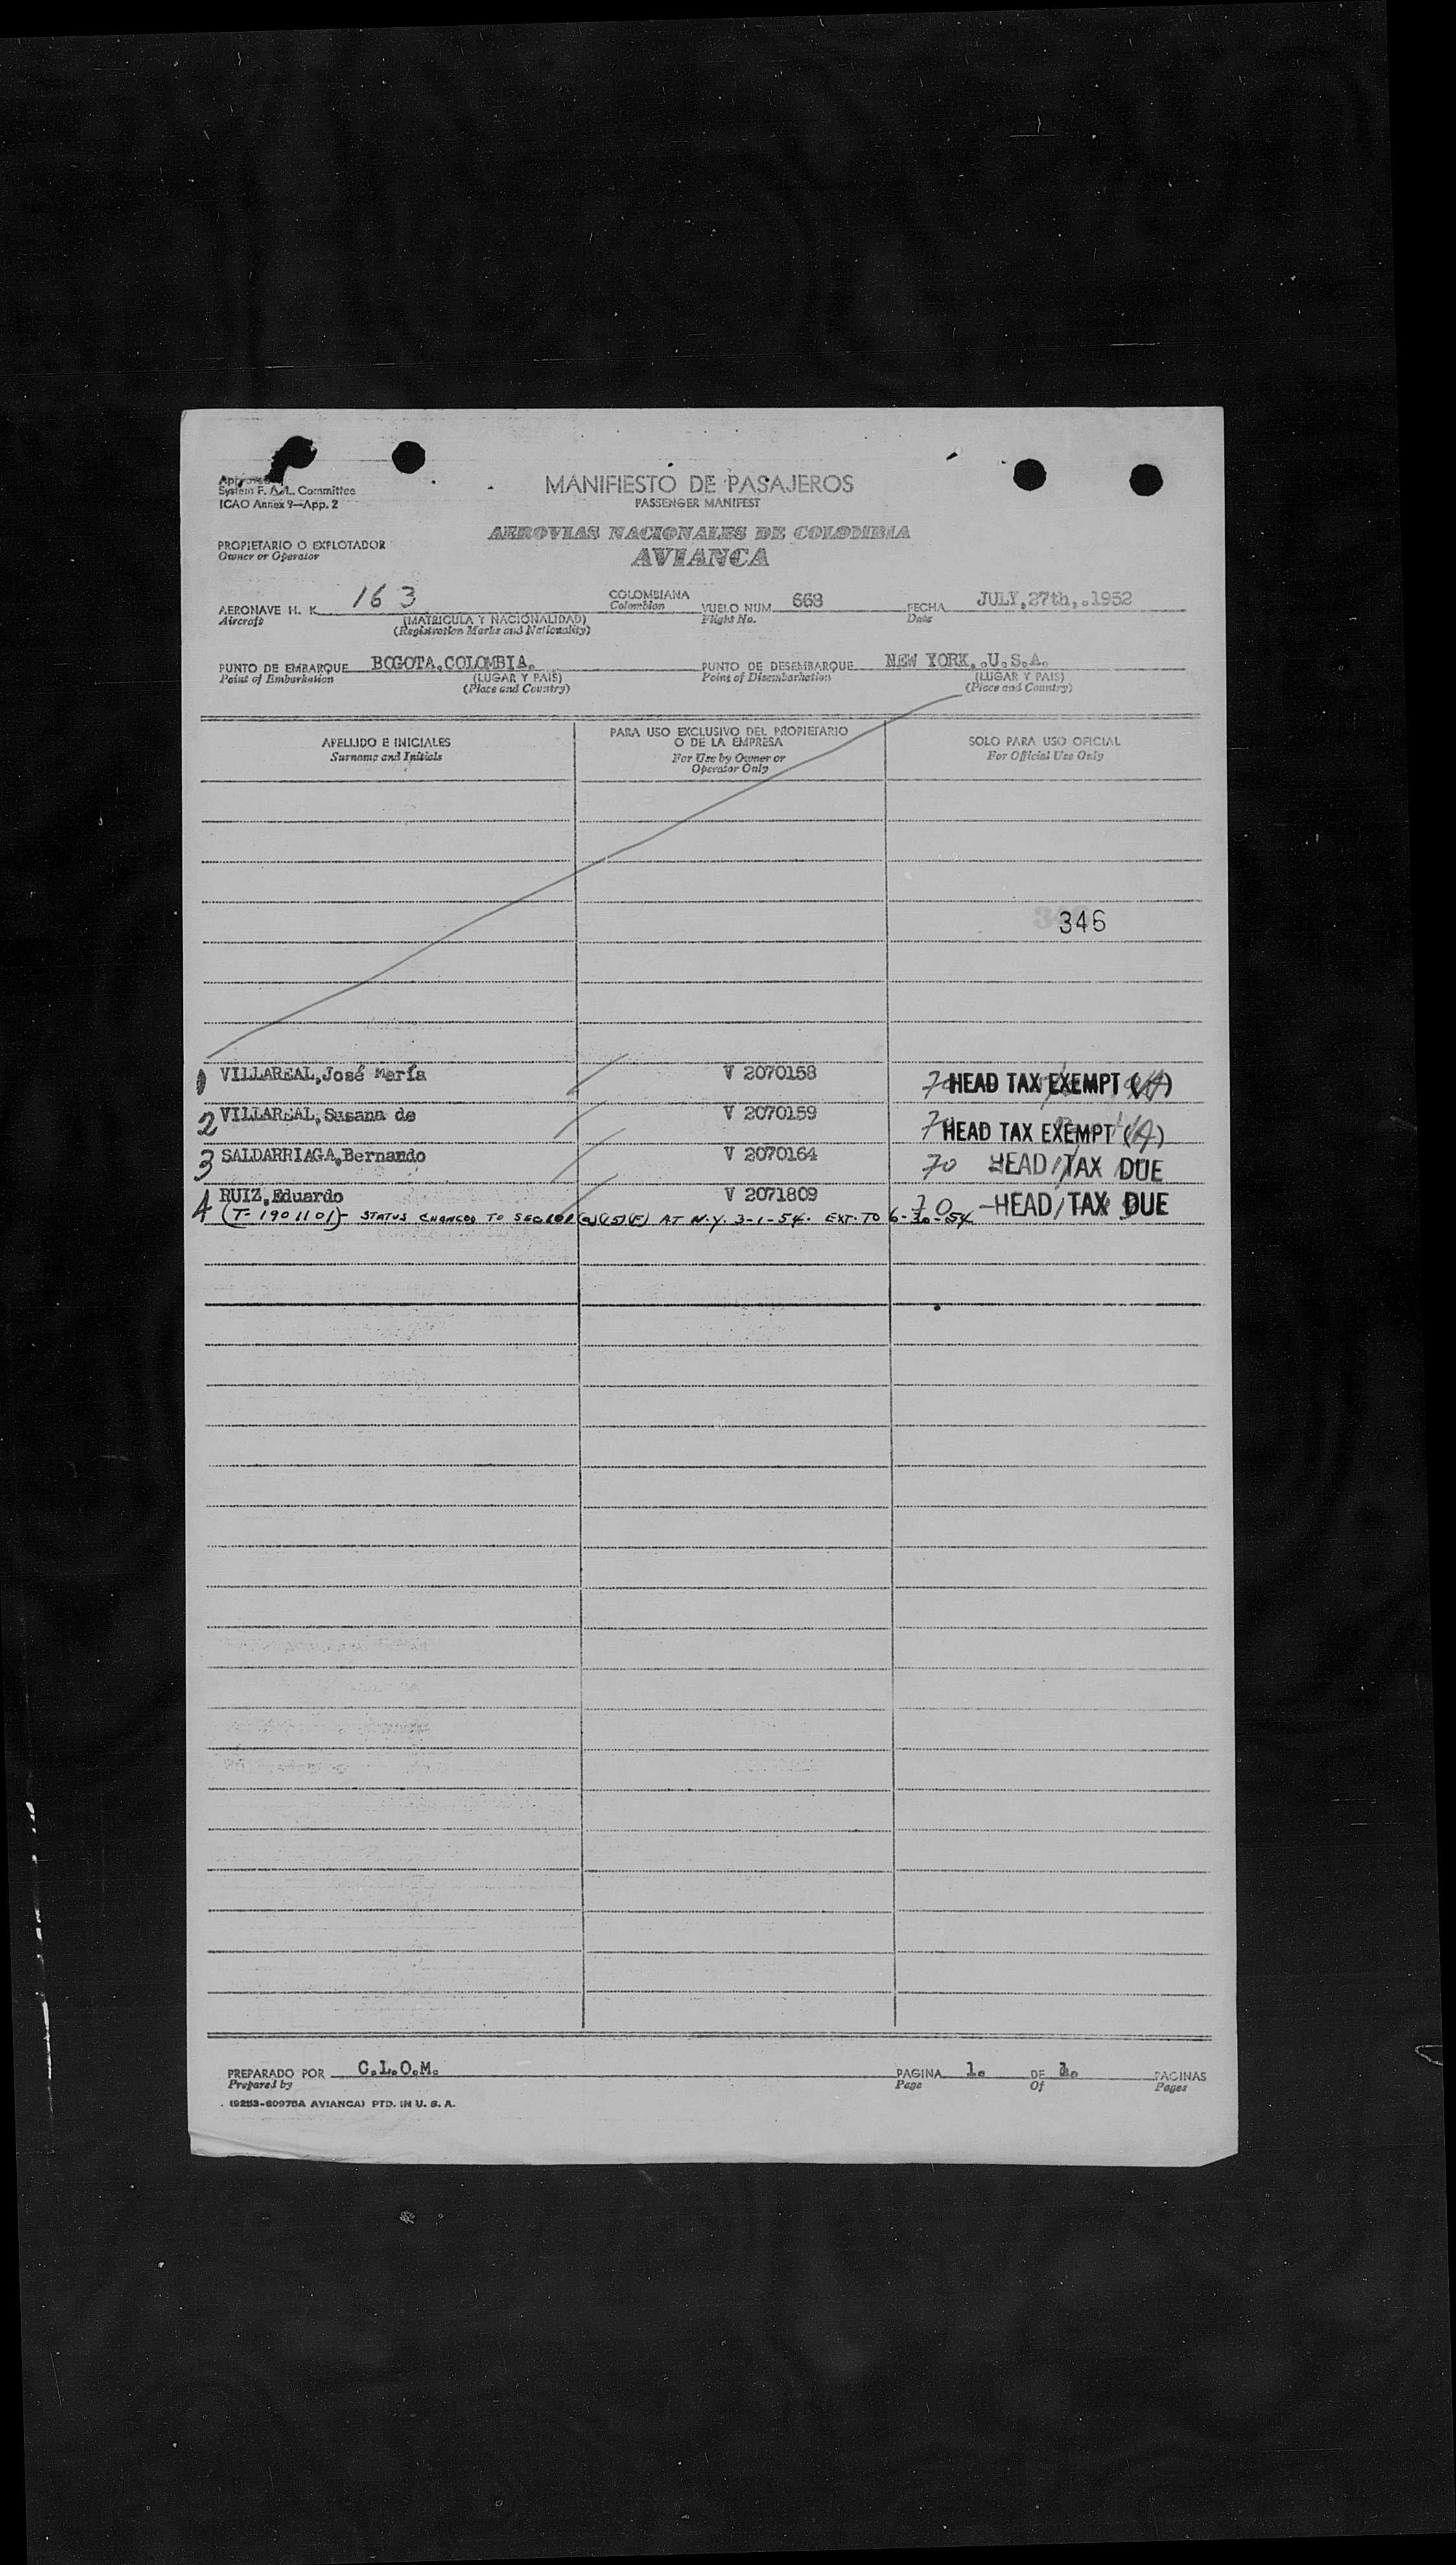 Approved
System F. A. L. Committee
ICAO Annex 9—App. 2
MANIFIESTO DE PASAJEROS
PASSENGER MANIFEST
AEROVIAS NACIONALES DE COLOMBIA
AVIANCA
PROPIETARIO O EXPLOTADOR
Owner or Operator
AERONAVE H. K. 163 COLOMBIANA VUELO NUM. 668 FECHA JULY,27th,.1952
Aircraft (MATRICULA Y NACIONALIDAD) Colombian Flight No. Date
(Registration Marks and Nationality)
PUNTO DE EMBARQUE BOGOTA.COLOMBIA. PUNTO DE DESEMBARQUE NEW YORK,.U.S.A.
Point of Embarkation (LUGAR Y PAIS) Point of Disembarkation (LUGAR Y PAIS)
(Place and Country) (Place and Country)
APELLIDO E INICIALES
Surname and Initials
PARA USO EXCLUSIVO DEL PROPIETARIO
O DE LA EMPRESA
For Use by Owner or
Operator Only
SOLO PARA USO OFICIAL
For Official Use Only
346
1 VILLAREAL,José María V 2070158 70 HEAD TAX EXEMPT
2 VILLAREAL,Susana de V 2070159 70 HEAD TAX EXEMPT
3 SALDARRIAGA,Bernando V 2070164 70 HEAD TAX DUE
4 RUIZ,Eduardo V 2071809 70 HEAD TAX DUE
(T-1901101)- STATUS CHANGED TO SEC 101(a)(15)(F) AT N.Y. 3-1-54. EXT. TO 6-30-54
PREPARADO POR C.L.O.M. PAGINA 1. DE 1. PAGINAS
Prepared by Page Of Pages
(9253-60975A AVIANCA) PTD. IN U. S. A.